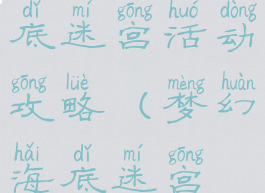 dǐ mí gōng huó dòng
底迷宫活动
gōng lüè mèng huàn
攻略(梦幻
hǎi dǐ mí gōng
海底迷宫